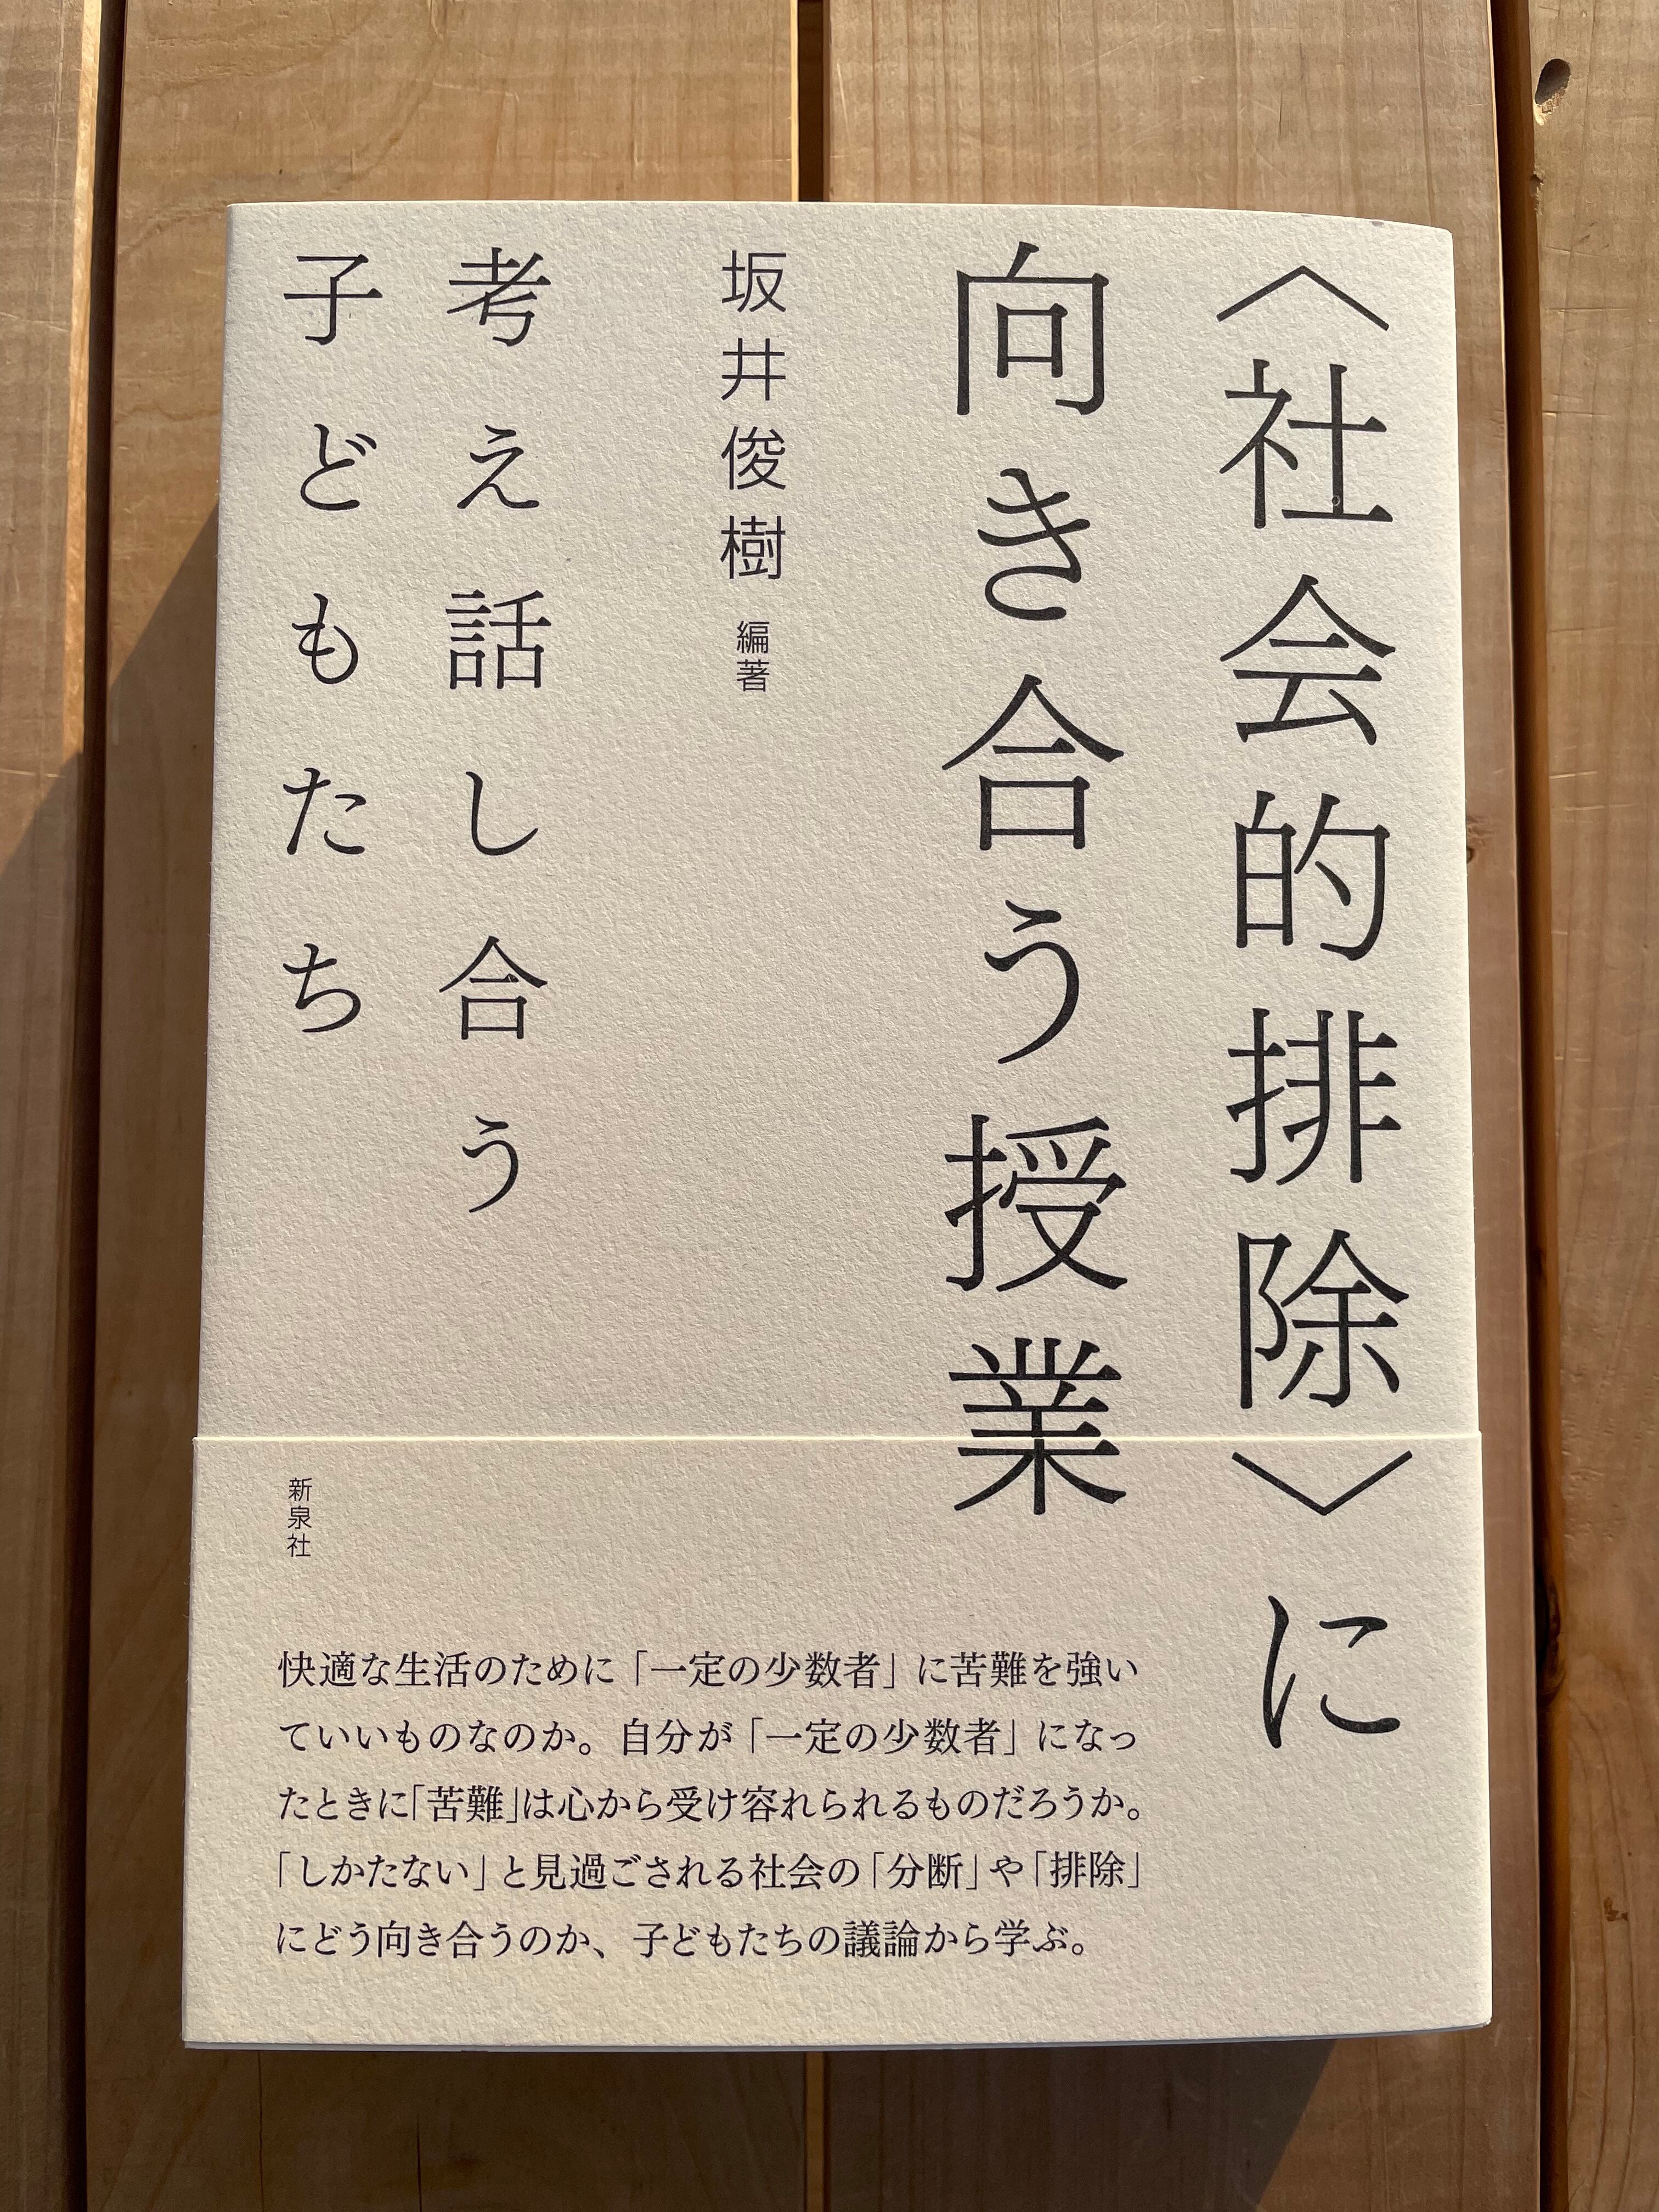 〈社会的排除〉に
向き合う授業
坂井俊樹 編著
考え話し合う
子どもたち
新泉社
快適な生活のために「一定の少数者」に苦難を強い
ていいものなのか。自分が「一定の少数者」になっ
たときに「苦難」は心から受け容れられるものだろうか。
「しかたない」と見過ごされる社会の「分断」や「排除」
にどう向き合うのか、子どもたちの議論から学ぶ。